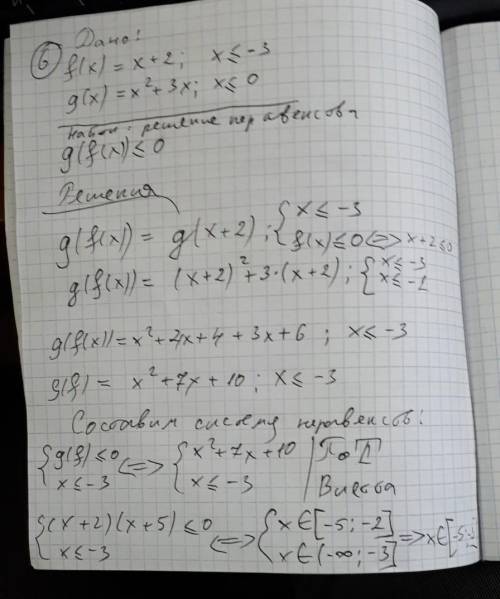 ⑥ Дано:
f(x) = x+2; x ≤ -3
g(x) = x²+3x; x ≤ 0
Найти: решение неравенсва
g(f(x)) ≤ 0
Решения
g(f(x)) = g(x+2); { x ≤ -3
f(x) ≤ 0 <=> x+2 ≤ 0
g(f(x)) = (x+2)²+3·(x+2); { x ≤ -3
x ≤ -2
g(f(x)) = x²+4x+4+3x+6; x ≤ -3
g(f) = x²+7x+10; x ≤ -3
Составим систему неравенсв:
{ g(f) ≤ 0 <=> { x²+7x+10 | По Т
x ≤ -3 x ≤ -3 Виета
{ (x+2)(x+5) ≤ 0 <=> { x∈[-5; -2] => x∈[-5;
x ≤ -3 x∈(-∞; -3]